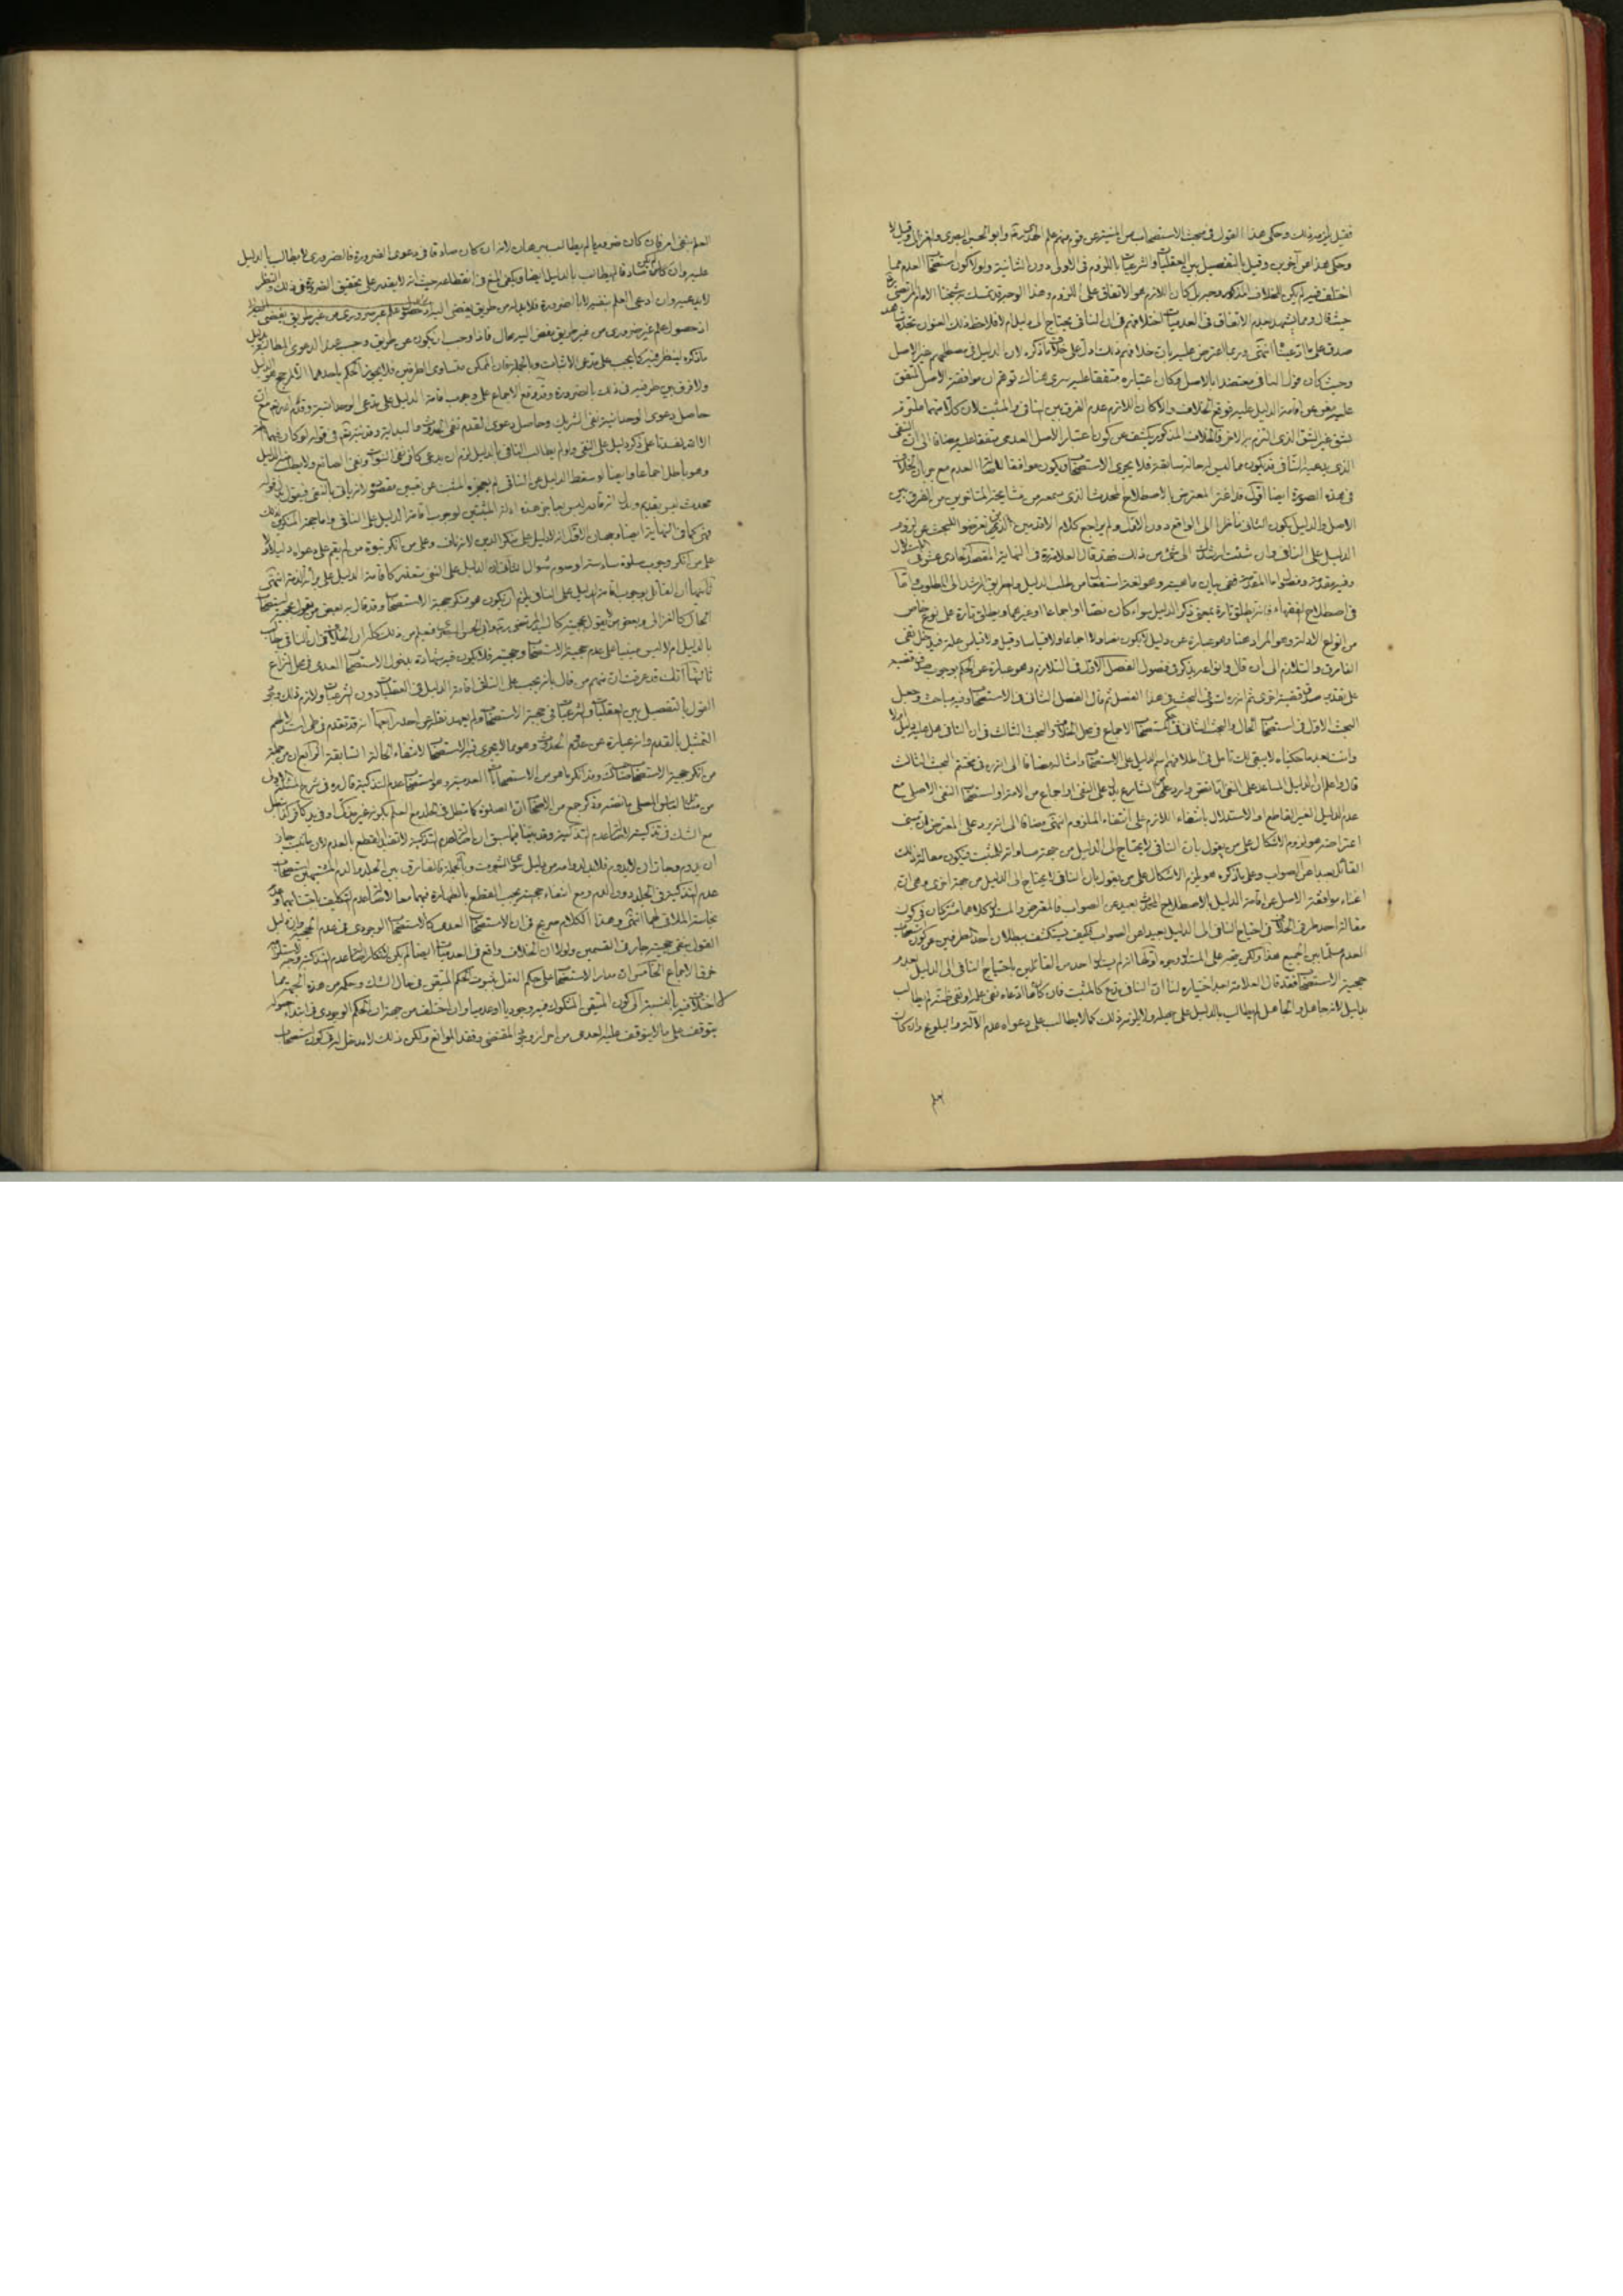 فقيل يلزمه ذلك وحكى هذا القول في مبحث الاستصحاب من المنية عن قوم منهم علم الهدى وابو الحسين البصري والغزالي وقيل لا
وحكى هذا عن آخرين وقيل بالتفصيل بين العقليات والشرعيات باللزوم في الاولى دون الثانية ولولا كون استصحاب العدم مما
اختلف فيه لم يكن للخلاف المذكور وجه بل كان اللازم هو الاتفاق على اللزوم وهذا الوجه قد تمسك به شيخنا الامام المرتضى
حيث قال ومما يشهد بعدم الاتفاق في العدميات اختلافهم في ان النافي يحتاج الى دليل ام لا فلاحظ ذلك العنوان تجده شاهد
صدق على ما ادعيناه انتهى وربما اعترض عليه بان خلافهم ذلك ادل على خلاف ما ذكره لان الدليل في مصطلحهم غير الاصل
وحيث كان قول النافي معتضدا بالاصل وكان اعتباره متفقا عليه سرى هناك توهم ان موافقة الاصل المتفق
عليه تغني عن اقامة الدليل عليه فوقع الخلاف والا كان اللازم عدم الفرق بين النافي والمثبت لان كلا منهما ملتزم
بشق غير الشق الذي التزم به الاخر فالخلاف المذكور يكشف عن كون اعتبار الاصل العدمي متفقا عليه مضافا الى ان النفي
الذي يدعيه النافي قد يكون مما ليس له حالة سابقة فلا يجري الاستصحاب ويكون موافقا لاستصحاب العدم مع جريان الخلاف
في هذه الصورة ايضا اقول قد اغتر المعترض بالاصطلاح المحدث الذي سمعه من مشايخه المتاخرين من الفرق بين
الاصل والدليل بكون الثاني ناظرا الى الواقع دون الاول ولم يراجع كلام الاقدمين الذين تعرضوا للبحث عن لزوم
الدليل على النافي وان شئت ارشدك الى شيء من ذلك فقد قال العلامة في النهاية المقصد الحادي عشر في الاستدلال
وفيه مقدمة وفصول اما المقدمة ففي بيان ماهيته وهو لغة استفعال من طلب الدليل والطريق المرشد الى المطلوب واما
في اصطلاح الفقهاء فانه يطلق تارة بمعنى ذكر الدليل سواء كان نصا او اجماعا او غيرهما ويطلق تارة على نوع خاص
من انواع الادلة وهو المراد هنا وهو عبارة عن دليل لا يكون نصا ولا اجماعا ولا قياسا وقيل ولا قياس علة فيدخل نفي
الفارق والتلازم الى ان قال وانواعه يذكر في فصول الفصل الاول في التلازم وهو عبارة عن الحكم بوجوب صدق قضية
على تقدير صدق قضية اخرى ثم انه في البحث في هذا الفصل ثم قال الفصل الثاني في الاستصحاب وفيه مباحث وجعل
البحث الاول في استصحاب الحال والبحث الثاني في حكم استصحاب الاجماع في محل الخلاف والبحث الثالث في ان النافي هل عليه دليل ام لا
وانت بعد ما حكيناه لا يبقى لك تامل في اطلاقهم اسم الدليل على الاستصحاب وامثاله مضافا الى انه في مختتم البحث الثالث
قال واعلم ان الدليل المساعد على النفي اما نص وارد عن الشارع يدل على النفي او اجماع من الامة او استصحاب النفي الاصلي مع
عدم الدليل المغير القاطع او الاستدلال بانتفاء اللازم على انتفاء الملزوم انتهى مضافا الى انه يرد على المعترض ان مبنى
اعتراضه هو لزوم الاشكال على من يقول بان النافي لا يحتاج الى الدليل من جهة مساواته للمثبت فيكون مقالة ذلك
القائل بعيدا عن الصواب وعلى ما ذكره هو يلزم الاشكال على من يقول بان النافي لا يحتاج الى الدليل من جهة اخرى وهي ان
اغناء موافقة الاصل عن اقامة الدليل بالاصطلاح المحدث بعيد عن الصواب فالمعترض والمستدل كلاهما مشتركان في كون
مقالة احد طرفي الخلاف في احتياج النافي الى الدليل بعيدا عن الصواب فكيف يستكشف ببطلان احد الطرفين عن كون استصحاب
العدم مسلما بين الجميع هذا ولكن يتجه على المستدل وجوه اولها انه لم يستدل احد من القائلين باحتياج النافي الى الدليل بعدم
حجية الاستصحاب فقد قال العلامة بعد اختياره لنا ان النافي مدع كالمثبت فان كان ما ادعاه نفي علمه او نفي ظنه لم يطالب
بدليل لانه جاهل والجاهل لم يطالب بالدليل على جهله ولا يلزمه ذلك كما لا يطالب على دعواه عدم الالم والجوع وان كان
العلم بنفي امر فان كان ضروريا لم يطالب ببرهان لانه ان كان صادقا في دعوى الضرورة فالضروري لا يطالب بالدليل
عليه وان كان كاذبا لم يطالب بالدليل ايضا ويكفي المنع في انقطاعه حيث انه لا يقدر على تحقيق الضرورة في ذلك والنظر
لا يدعيه وان ادعى العلم بنفيه لا بالضرورة فلا بد له من طريق يفضي اليه اذ حصول علم غير ضروري من غير طريق يفضي
اذ حصول علم غير ضروري من غير طريق يفضي اليه محال فاذا وجب ان يكون عن طريق وجب عند الدعوى المطالبة بدليل
ما ذكره لينظر فيه كما يجب على مدعي الاثبات وبالجملة فان الممكن متساوي الطرفين فلا يجوز الحكم باحدهما الا لمرجح هو الدليل
ولا فرق بين طرفيه في ذلك بالضرورة وقد وقع الاجماع على وجوب اقامة الدليل على مدعي الوحدانية وقدم الله تعالى مع ان
حاصل دعوى الوحدانية نفي الشريك وحاصل دعوى القدم نفي الحدوث والبداية وقد نبه تعالى في قوله لو كان فيهما آلهة
الا الله لفسدتا على ذكر دليل على النفي ولو لم يطالب النافي بالدليل لزم ان يدعي كافر نفي النبوات ونفي الصانع ولا يطالب منه الدليل
وهو باطل اجماعا وايضا لو سقط الدليل عن النافي لم يعجز المثبت عن التعبير عن مقصوده اثباته بالنفي فيقول بدل قوله
محدث ليس بقديم وبدل انه قادر ليس بعاجز هذه ادلة المثبتين لوجوب اقامة الدليل على النافي واما حجة المنكرين لذلك
فهي كما في النهاية ايضا وجهان الاول انه لا دليل على منكر الدين لانه ناف وعلى من انكر نبوة من لم يقم على دعواه دليلا ولا
على من انكر وجوب صلوة سادسة او صوم شوال الثاني ان الدليل على النفي متعذر كاقامة الدليل على براءة الذمة انتهى
ثانيها ان القائل بوجوب اقامة الدليل على النافي يلزم ان يكون هو منكر حجية الاستصحاب وقد قال به بعض من يقول بحجية استصحاب
الحال كالغزالي وبعض من لا يقول بحجيته كالسيد المرتضى ره وابو الحسين البصري فيعلم من ذلك كله ان الخلاف في ان النافي يطالب
بالدليل ام لا ليس مبنيا على عدم حجية الاستصحاب وحجيته فلا يكون فيه شهادة بدخول الاستصحاب العدمي في محل النزاع
ثالثها انك قد عرفت ان منهم من قال بانه يجب على النافي اقامة الدليل في العقليات دون الشرعيات ولازم ذلك وجود
القول بالتفصيل بين العقليات والشرعيات في حجية الاستصحاب ولم يعهد نقله عن احد رابعها انه قد تقدم في طي استدلالهم
التمثيل بالقدم وانه عبارة عن عدم الحدوث وهو مما لا يجري فيه الاستصحاب لانتفاء الحالة السابقة الرابع ان من جملة
من انكر حجية الاستصحاب صاحب المدارك وقد انكر ما هو من الاستصحابات العدمية وهو استصحاب عدم التذكية قال ره في شرح المسئلة الاولى
مع الشك في تذكيته لاصالة عدم التذكية وقد بينا فيما سبق ان اصالة عدم التذكية لا تفيد القطع بالعدم لان ما ثبت جاز
ان يدوم وجاز ان لا يدوم فلا بد لدوامه من دليل سوى دليل الثبوت وبالجملة فالفارق بين الجلد والدم المشتبهين استصحاب
عدم التذكية في الجلد دون الدم ومع انتفاء حجيته يجب القطع بالطهارة فيهما معا لاصالة عدم التكليف باجتنابهما وعدم
نجاسة الملاقي لهما انتهى وهذا الكلام صريح في ان الاستصحاب العدمي كالاستصحاب الوجودي في عدم الحجية وان دليل
القول بنفي حجيته جار في القسمين ولولا ان الخلاف واقع في العدميات ايضا لم يكن لانكار اصالة عدم التذكية وجه لاستلزامه
خرق الاجماع الخامس ان مدار الاستصحاب على حكم العقل بثبوت الحكم المتيقن في حال الشك وحكمه من هذه الجهة مما
لا اختلاف فيه بالنسبة الى كون المتيقن المشكوك فيه وجوديا او عدميا وان اختلف من جهة ان الحكم الوجودي في ابتداء حصوله
يتوقف على ما لا يتوقف عليه العدمي من احراز وجود المقتضي وفقد الموانع ولكن ذلك لا مدخل له في كون استصحاب